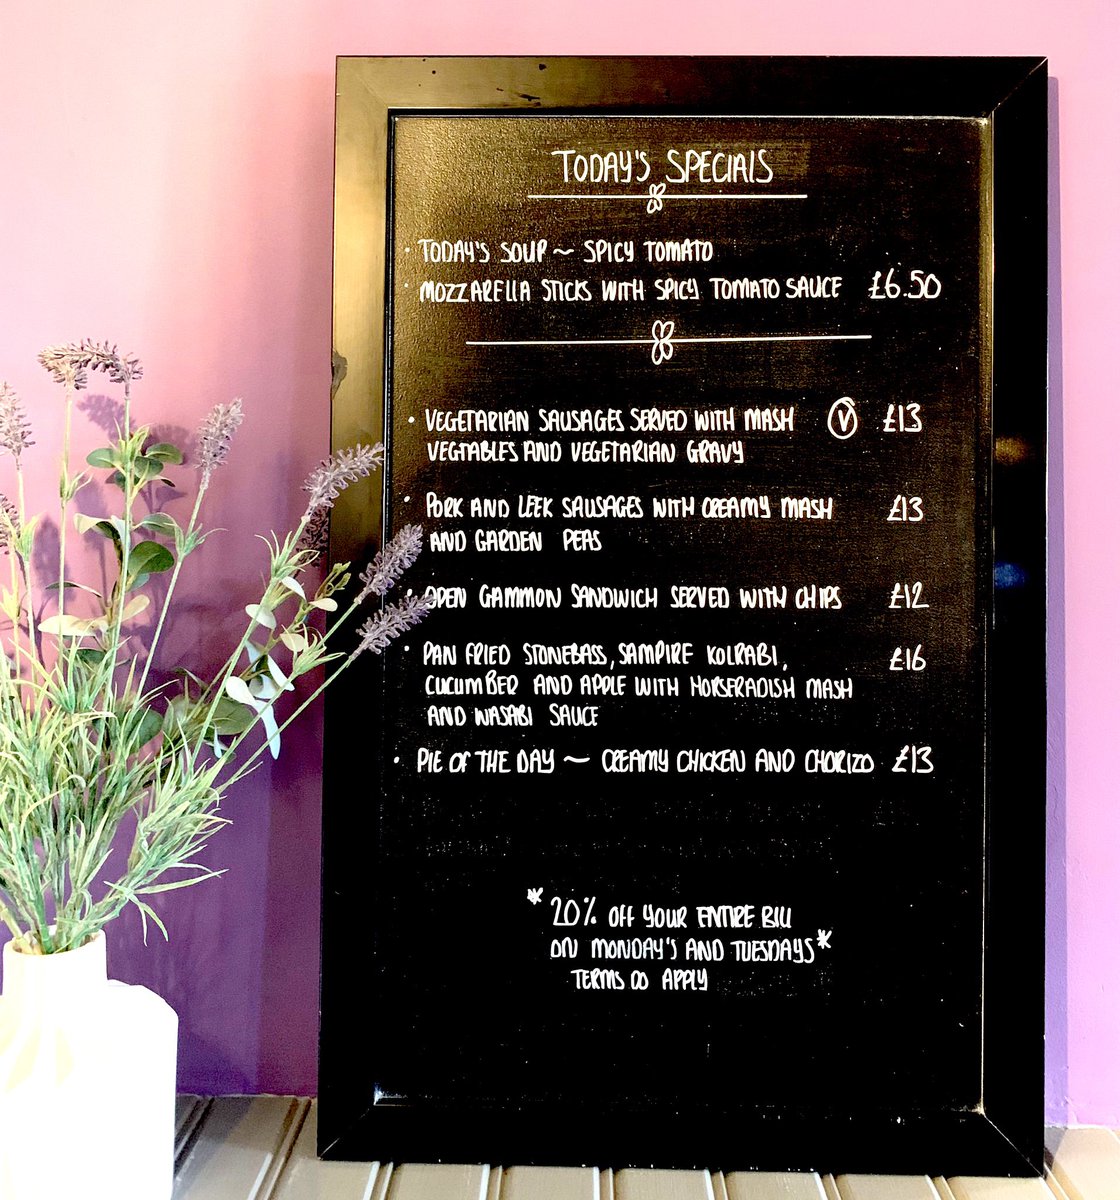 TODAY'S SPECIALS
• TODAY'S SOUP ~ SPICY TOMATO
• MOZZARELLA STICKS WITH SPICY TOMATO SAUCE £6.50
• VEGETARIAN SAUSAGES SERVED WITH MASH Ⓥ £13
VEGTABLES AND VEGETARIAN GRAVY
• PORK AND LEEK SAUSAGES WITH CREAMY MASH £13
AND GARDEN PEAS
• OPEN GAMMON SANDWICH SERVED WITH CHIPS £12
• PAN FRIED STONEBASS, SAMPIRE KOLRABI, £16
CUCUMBER AND APPLE WITH HORSERADISH MASH
AND WASABI SAUCE
• PIE OF THE DAY ~ CREAMY CHICKEN AND CHORIZO £13
* 20% OFF YOUR ENTIRE BILL
ON MONDAY'S AND TUESDAYS *
TERMS DO APPLY